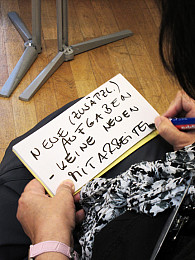 NEUE (ZUSÄTZL.)
AUFGABEN
- KEINE NEUEN
MITARBEITER